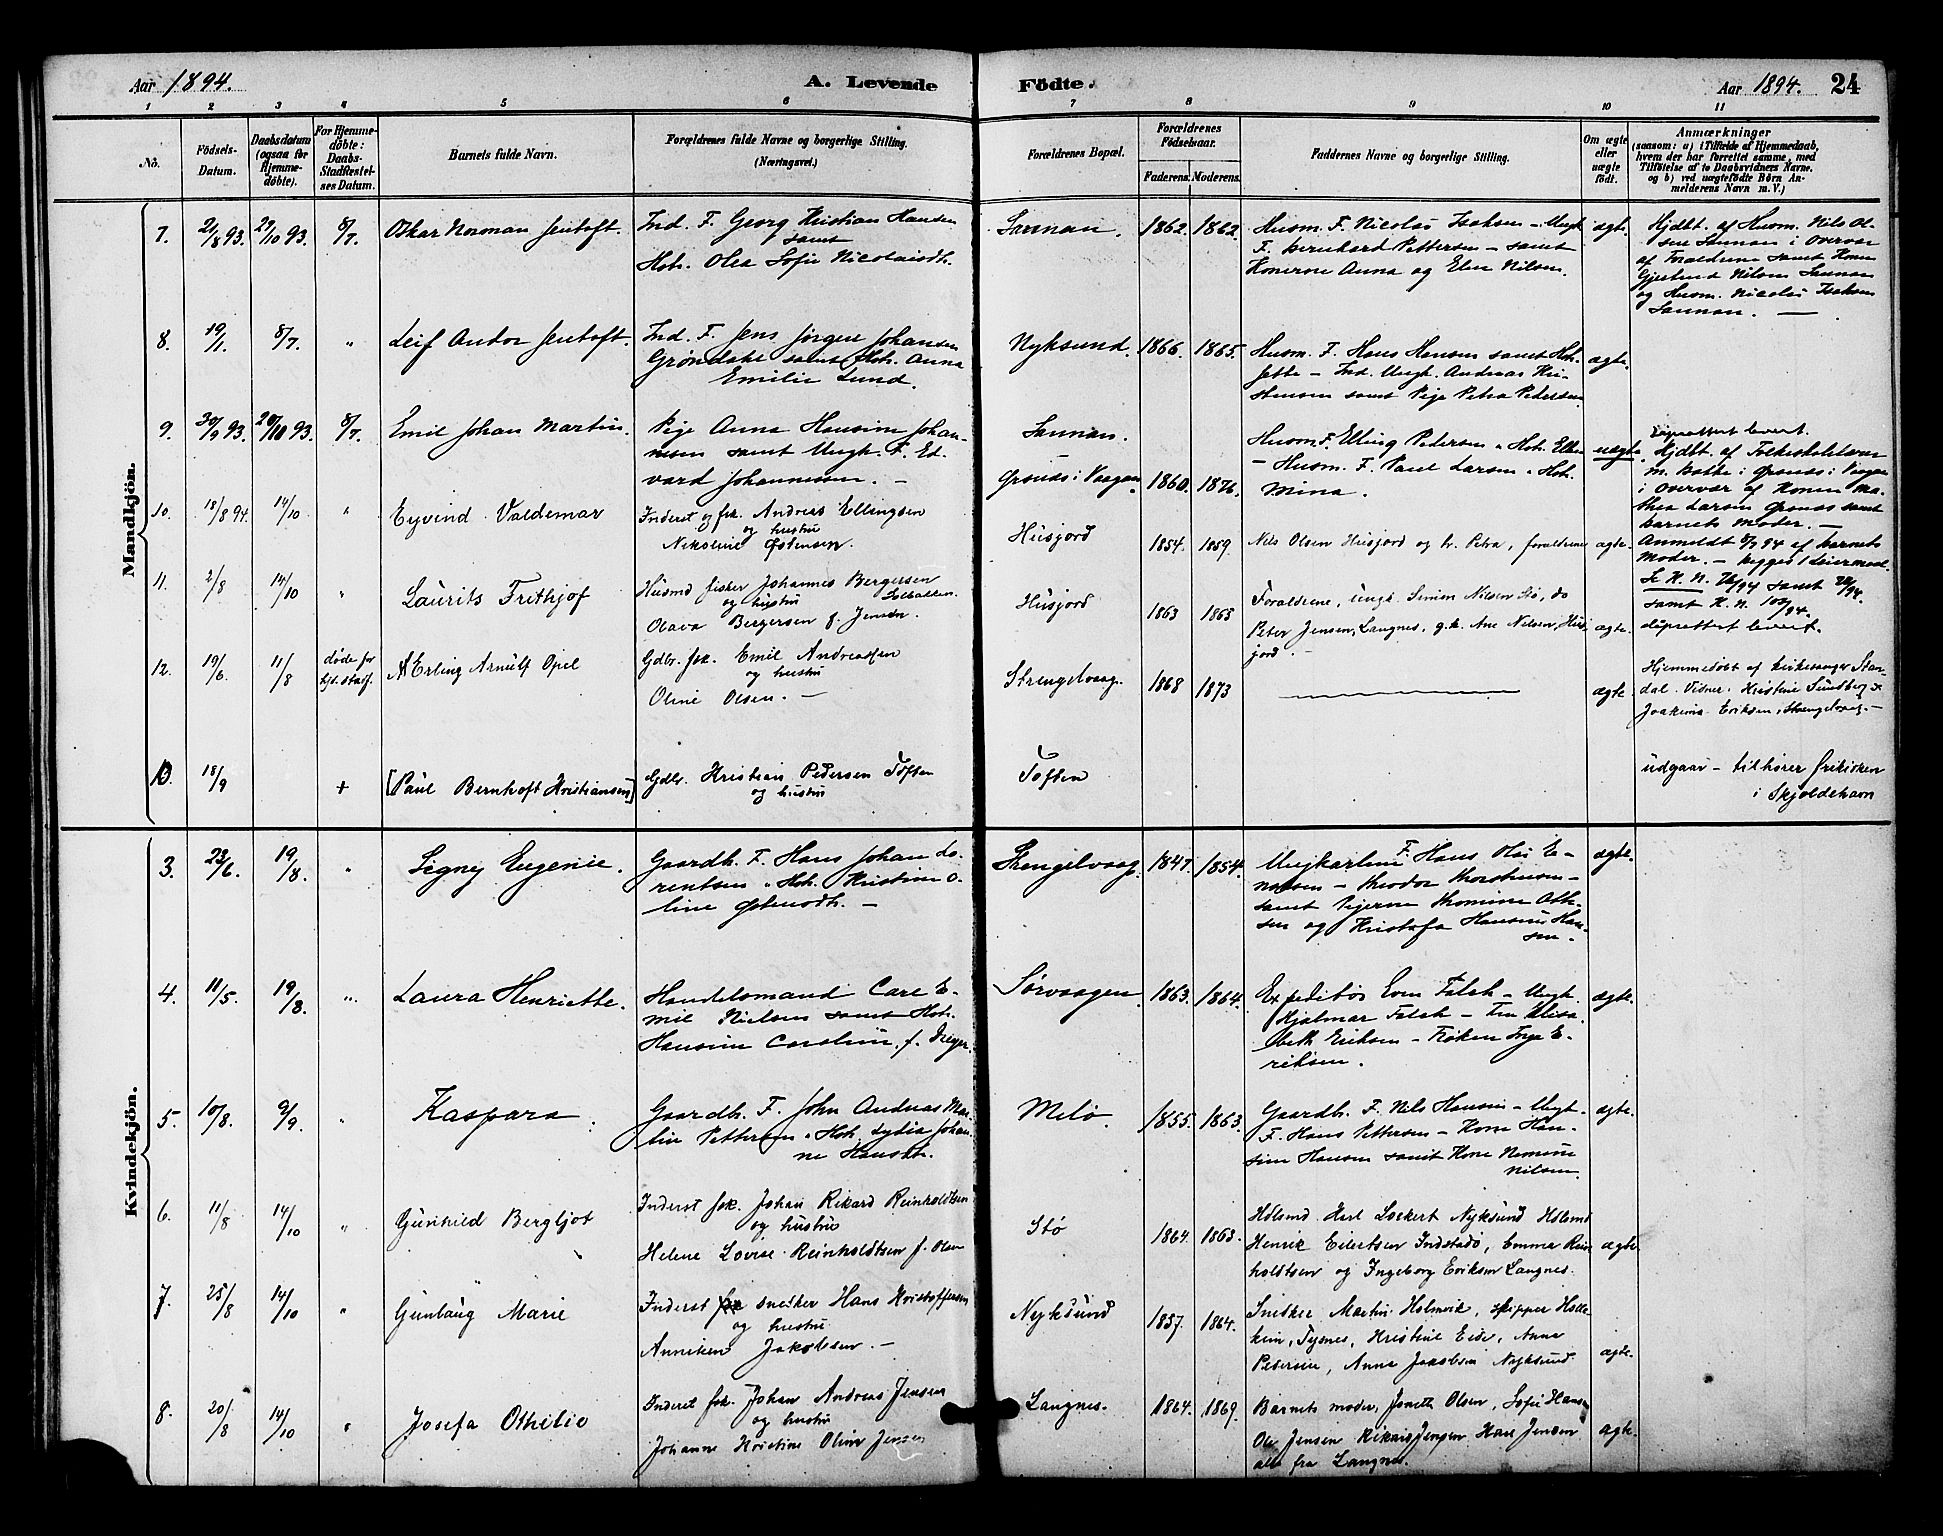 Aar 1894. A. Levende Födte. Aar 1894. 24
1 2 3 4 5 6 7 8 9 10 11
No.
Födsels-Datum.
Daabsdatum (ogsaa for Hjemmedöbte).
For Hjemmedöbte: Daabs-Stadfestelses Datum.
Barnets fulde Navn.
Forældrenes fulde Navne og borgerlige Stilling.
(Næringsvei.)
Forældrenes Bopæl.
Forældrenes Födselsaar.
Faderens. Moderens.
Faddernes Navne og borgerlige Stilling.
Om ægte eller uægte födt.
Anmærkninger
(saasom: a) i Tilfælde af Hjemmedaab,
hvem der har forrettet samme, med
Tilföielse af to Daabsvidners Navne.
og b) ved uægtefödte Börn An-
melderens Navn m. V.)
Mandkjön.
7. 21/8 93. 29/10 93. 8/7. Oskar Norman Jentoft. Ind. F. Georg Kristian Hansen
samt
Hstr. Olea Sofie Nicolaisdtr.
Sannan. 1862. 1862.
Husm. F. Nicolai Isaksen – Ungk.
F. Bernhard Pettersen – samt
Konerne Anna og Elen Nilsen.
ægte.
Hjdbt. af Husm. Nils Ol-
sen Sannan i Overvær
af Forældrene samt Konen
Gjertrud Nilsen Sannan
og Husm. Nicolai Isaksen
Sannan. —
8. 19/1. 8/7. " Leif Andor Jentoft. Ind. F. Jens Jørgen Johansen
Grøndahl samt Hstr. Anna
Emilie Lund.
Nyksund. 1866. 1865.
Husm. F. Hans Hansen samt Hstr.
Jette – Ind. Ungk. Andreas Kri-
stensen samt Pige Petra Pedersen.
ægte.
9. 30/9 93. 20/10 93. 8/7. Emil Johan Martin. Pige Anna Hansine Johan-
nesen samt Ungk. F. Ed-
vard Johannessen. —
Sannan.
Grønds i Vaagan. 1860. 1876.
Husm. F. Elling Pedersen – Hstr. Ellen
– Husm. F. Paul Larsen – Hstr.
Mina.
uægte.
Hjdbt. af Folkeskolelærer
M. Bakke i Grønds i Vaagan
i Overvær af Konen Ma-
thea Larsen Grønds samt
Barnets Moder. —
Anmeldt 8/7 94 af Barnets
Moder. –
Se K. N. 76/94 samt
samt K. N. 100/94.
10. 18/8 94. 14/10 " Eyvind Valdemar Inderst og fsk. Andreas Ellingsen
og hustru
Nikoline Østensen.
Husjord 1854. 1859.
Nils Olsen Husjord og h. Petra, forældrene
ægte.
11. 2/8 14/10 " Laurits Frithjof Husmd fisker Johannes Bergersen
og hustru Solbakken.
Olava Bergersen f. Jensen.
Husjord 1863 1865
Forældrene, ungk. Simon Nilsen Stø, do
Peter Jensen, Langnes, g.k. Ane Nilsen, Hus-
jord. —
ægte.
12. 19/6. 11/8 døde før hjt. stadf. Erling Arnulf Opel Gdbr. fsk. Emil Andreassen
og hustru
Oline Olsen. —
Strengelvaag. 1868 1873
ægte
Hjemmedøbt af kirkesanger Stan-
dal. Vidner. Kristine Sundberg &
Joakima Eriksen, Strengelvaag. —
10. 18/9 + [Paul Bernhoft Kristiansen] Gdbr. Kristian Pedersen Toften
og hustru
Toften
udgaar – tilhører frikirken
i Skjoldehavn
Kvindekjön.
3. 23/6. 19/8. " Signy Eugenie. Gaardb. F. Hans Johan Lo-
rentsen – Hstr. Kristine O-
line Østensdtr. —
Strengelvaag. 1847. 1854.
Ungkarlene F. Hans Olai E-
noksen – Theodor Thorstensen –
samt Pigerne Thomine Ott-
sen og Kristofa Hansine Han-
sen.
ægte.
4. 11/5. 19/8. " Laura Henriette. Handelsmand Carl E-
mil Nielsen samt Hstr.
Hansine Caroline, f. Dreyer.
Sørvaagen. 1863. 1864.
Expeditør Even Falch – Ungk.
Hjalmar Falch – Fru Elisa-
beth Eriksen – Frøken Inga E-
riksen.
ægte.
5. 10/8. 9/9. " Kaspara. Gaardb. F. John Andreas Mar-
tin Pettersen – Hstr. Lydia Johan-
ne Hansdtr.
Melø. 1855. 1863.
Gaardb. F. Nils Hansen – Ungk.
F. Hans Pettersen – Kone Han-
sine Hansen samt Kone Nomine
Nilsen.
ægte.
6. 11/8 14/10 " Gunhild Bergljot Inderst fsk. Johan Rikard Reinholdtsen
og hustru
Helene Lovise Reinholdtsen f. Olsen
Stø 1864. 1863.
Hdlsmd. Karl Lockert Nyksund Hdlsmd
Henrik Eilertsen Indstadø, Emma Rein-
holdtsen og Ingeborg Eriksen Langnes.
ægte
7. 25/8 14/10 " Gunlaug Marie Inderst snekker Hans Kristoffersen
og hustru
Anniken Jakobsen. —
Nyksund 1857. 1864.
Snekker Martin Holmvik, skipper Halle-
kim, Tysnes, Kristine Eide, Anna
Petersen, Anna Jakobsen Nyksund.
ægte.
8. 20/8 14/10 " Josefa Othilie Inderst fsk. Johan Andreas Jensen
og hustru
Johanne Kristine Oline Jensen
Langnes. 1864. 1869.
Barnets moder, Jonetta Olsen, Sofie Hansen
Ole Jensen Rikard Jensen Hans Jensen
alle fra Langnes.
ægte.